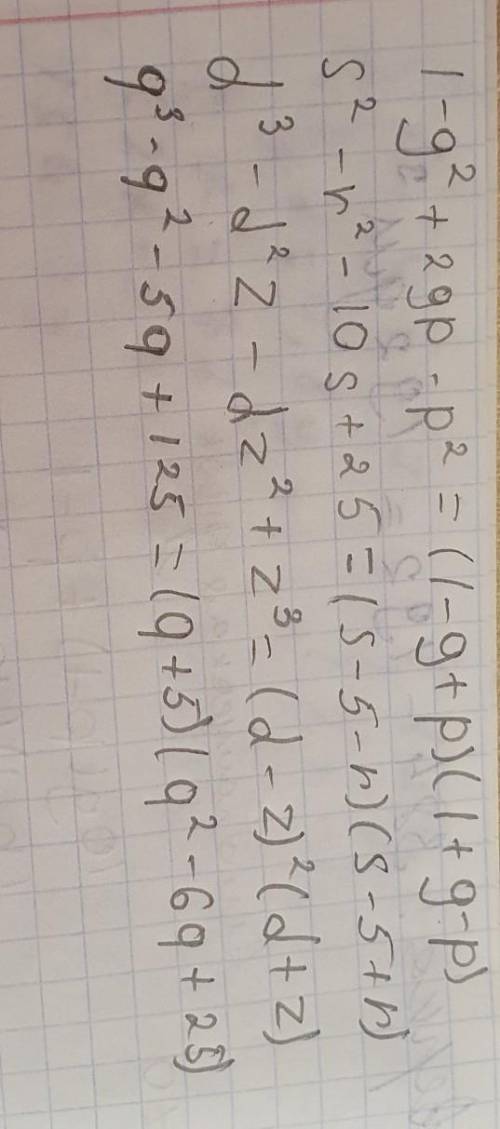 1-g²+2gp-p²=(1-g+p)(1+g-p)
s²-n²-10s+25=(s-5-n)(s-5+n)
d³-d²z-dz²+z³=(d-z)²(d+z)
q³-q²-5q+125=(q+5)(q²-6q+25)